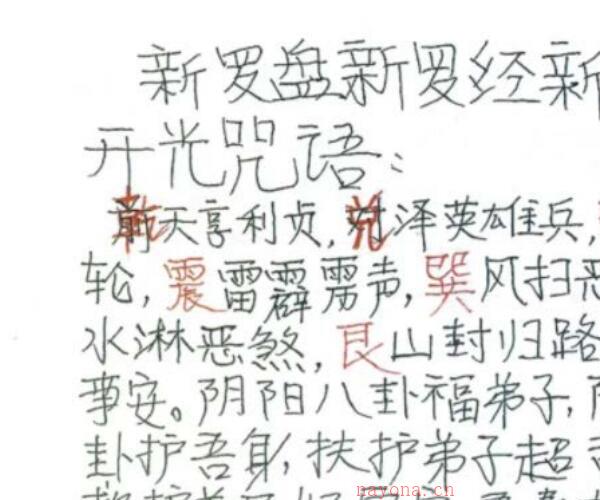 新罗盘新罗经新
开光咒语:
乾天亨利贞,兑泽英雄兵,
轮,震雷霹雳声,巽风扫恶
水淋恶煞,艮山封归路
事安。阴阳八卦福弟子,阴
卦护吾身,扶护弟子超
nayona.cn